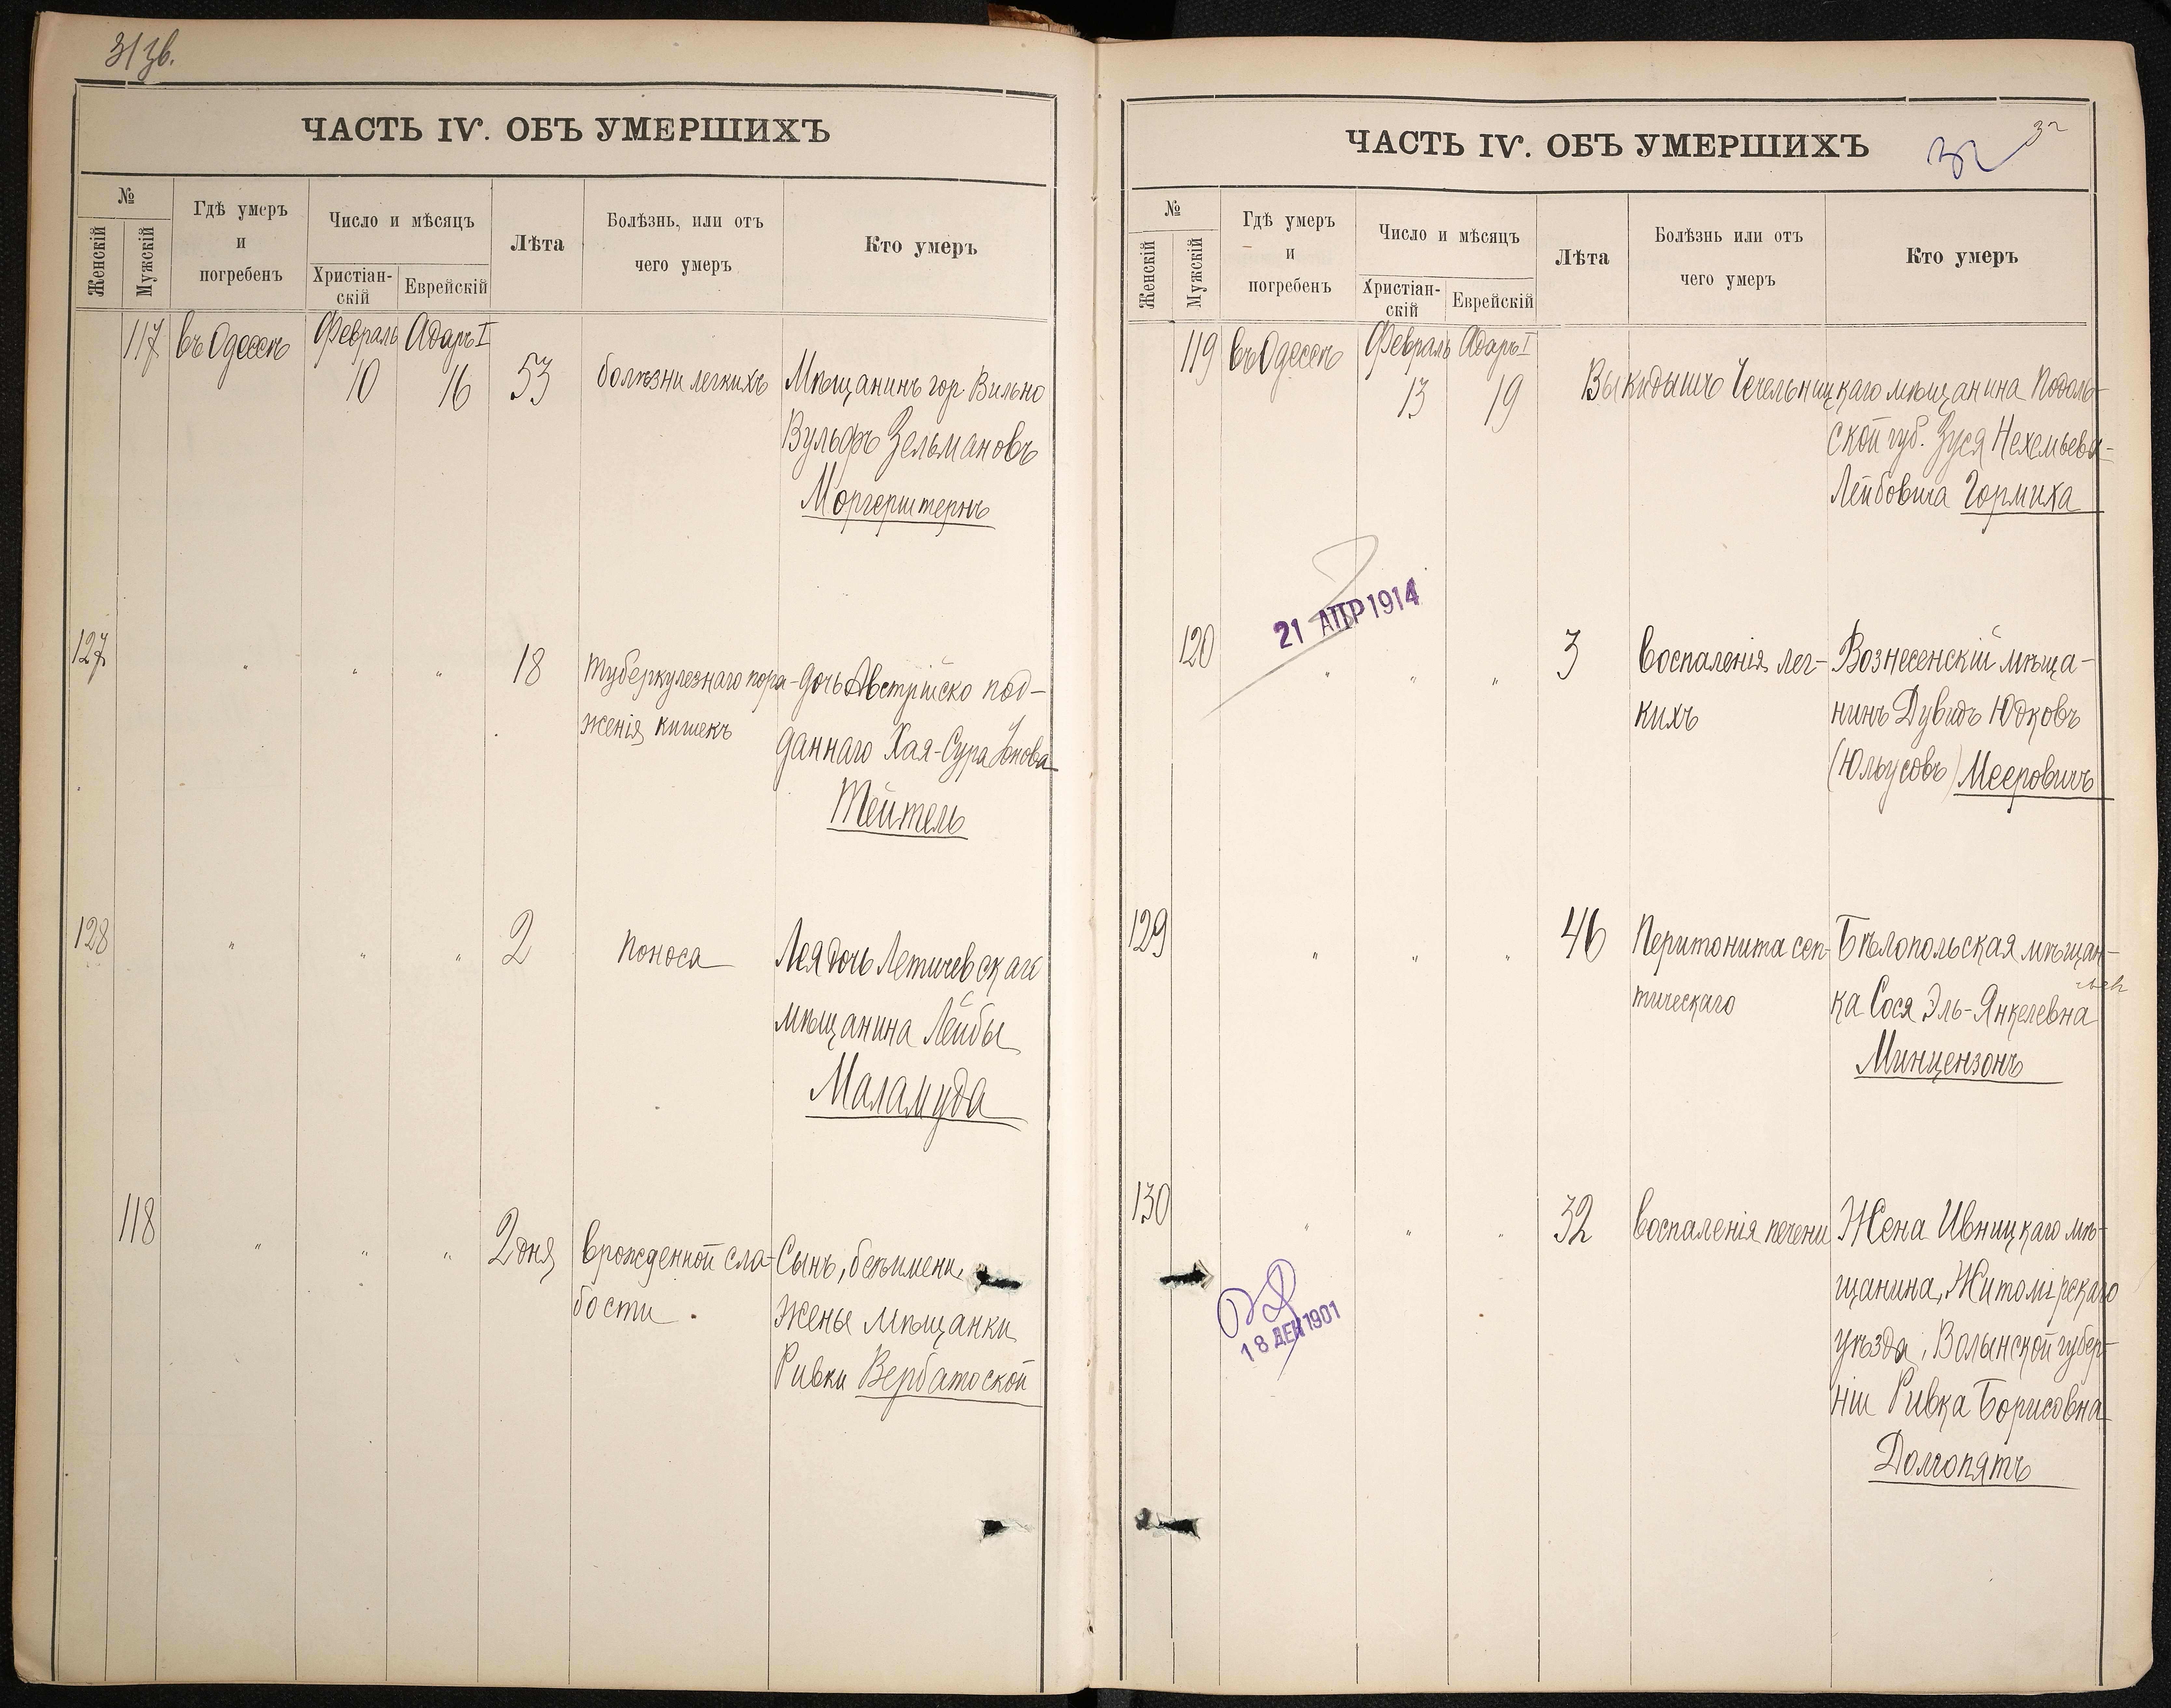 31 зв.
ЧАСТЬ IV. ОБЪ УМЕРШИХЪ
№
Женскій
Мужскій
Гдѣ умеръ
и
погребенъ
Число и мѣсяцъ
Христіан-
скій
Еврейскій
Лѣта
Болѣзнь, или отъ
чего умеръ
Кто умеръ
117 въ Одессѣ Февраль Адаръ I
10 16 53 болѣзни легкихъ Мѣщанинъ гор. Вильно
Вульфъ Зельмановъ
Моргерштернъ
127 " " " 18 туберкулезнаго пора- дочь Австрійско под-
женія кишекъ даннаго Хая-Сура
Тейтель
128 " " " 2 поноса Лея дочь Летичевскаго
мѣщанина Лейбы
Маламуда
118 " " " 2 дня врожденной сла- Сынъ, безъ имени,
бости мѣщанки
Ривки Вербатоской
ЧАСТЬ IV. ОБЪ УМЕРШИХЪ
32
32
№
Женскій
Мужскій
Гдѣ умеръ
и
погребенъ
Число и мѣсяцъ
Христіан-
скій
Еврейскій
Лѣта
Болѣзнь или отъ
чего умеръ
Кто умеръ
119 въ Одессѣ Февраль Адаръ I
13 19 Выкидышъ Чечельницкаго мѣщанина Подоль-
ской губ. Зуся Нехемьева-
Лейбовича Гормиха
21 АПР 1914
120 " " " 3 воспаленія лег- Вознесенскій мѣща-
кихъ нинъ Дувидъ Юдковъ
(Юльусовъ) Мееровичъ
129 " " " 46 Перитонита сеп- Бѣлопольская мѣщан-
тическаго ка Сося Эль-Янкелевна
Минцензонъ
130 " " " 32 воспаленія печени Жена Ивницкаго мѣ-
щанина, Житомірскаго
уѣзда, Волынской губер-
ніи Ривка Борисовна
Долгопятъ
18 ДЕК 1901